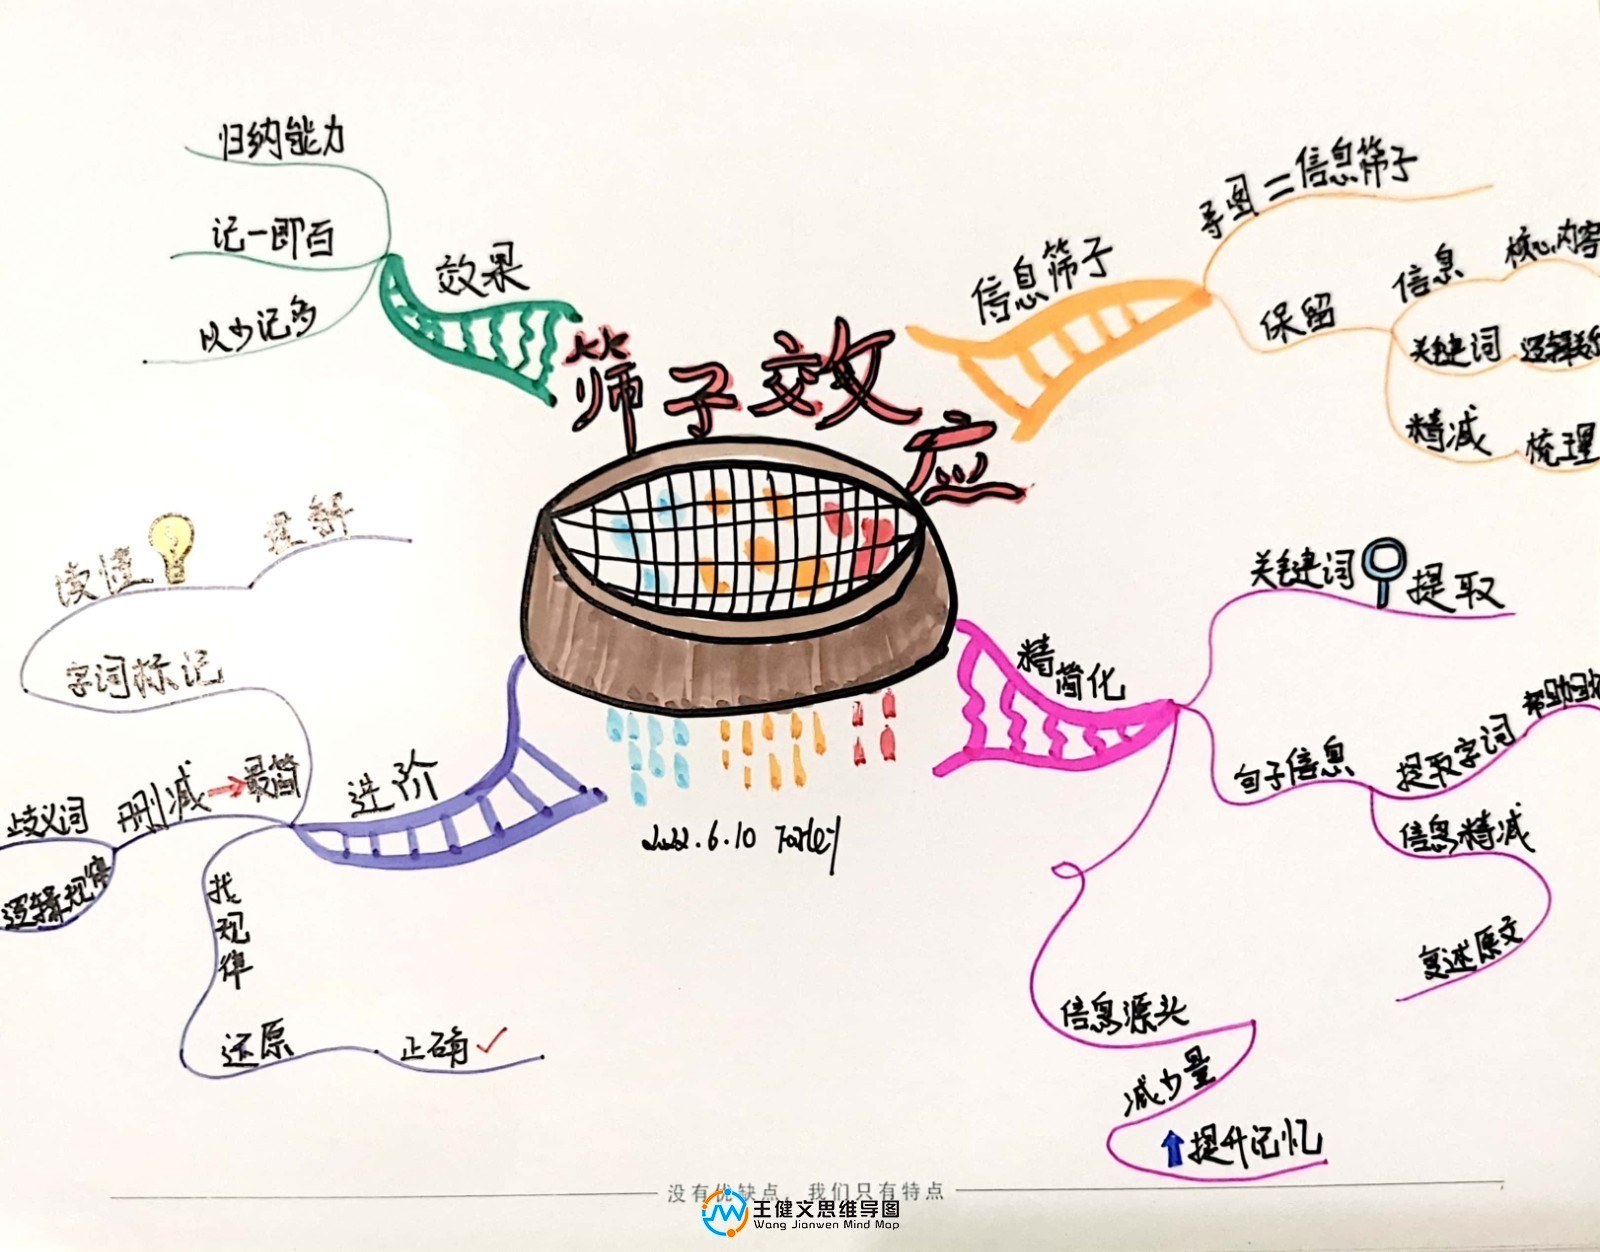 筛子效应
信息筛子
导图=信息筛子
保留
信息
核心内容
关键词
精减
梳理
精简化
关键词
提取
句子信息
提取字词
信息精减
复述原文
信息源头
减少量
提升记忆
进阶
字词标记
读懂
理解
删减→最简
歧义词
找规律
还原
正确✓
效果
归纳能力
记一即百
以少记多
2022.6.10
没有优缺点，我们只有特点
王健文思维导图
Wang Jianwen Mind Map